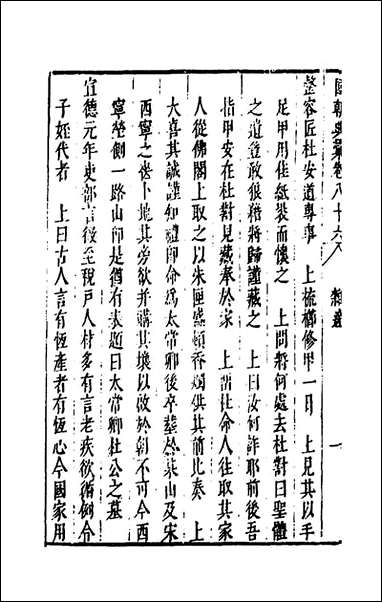 國朝典彙卷八十六 雜選 一
整容匠杜安道專事 上梳櫛修甲一日 上見其以手
足甲用佳紙裝而懷之 上問將何處去杜對曰聖體
之遺豈敢狼藉將歸謹藏之 上曰汝何詐耶前後吾
指甲安在杜對見藏奉於家 上留杜命人往取其家
人從佛閣上取之以朱匣盛頓香燭供其前比奏 上
大喜其誠謹知禮即命爲太常卿後卒葬山及宋
西寧之卜地其旁欲并購其壤以啟於朝不可今西
寧塋側一路山即是猶有表題曰太常卿杜公之墓
宣德元年吏部言至稅戶人材多有言老疾欲循例令
子姪代者 上曰古人言有恆產者有恆心今國家用